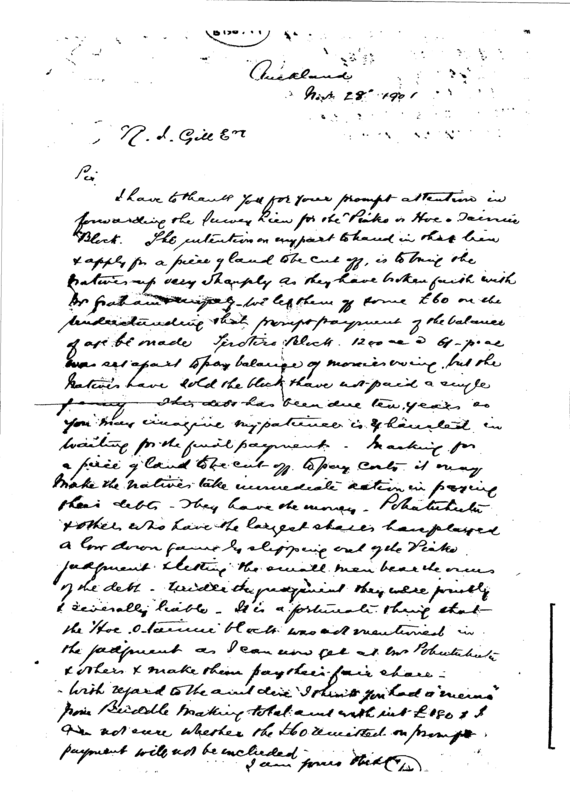 Auckland
Nov 28 1901
R. J. Gill Esq
Sir
I have to thank you for your prompt attention in
forwarding the Survey Lien for the Piako or Hoe o Tainui
Block. The intention on my part to hand in that lien
& apply for a piece of land to be cut off, is to bring the
Natives up very sharply as they have broken faith with
Mr Graham we let them off some £60 on the
understanding that prompt payment of the balance
be made Block. 1200 ac @ 6/- p ac
was set apart to pay balance of monies owing, but the
Natives have sold the block & have not paid a single
penny This debt has been due ten years so
you may imagine my patience is exhausted in
waiting for the final payment. In asking for
a piece of land to be cut off to pay costs it may
make the natives take immediate action in paying
their debts. They have the money. Pohutuhutu
& others who have the largest shares have played
a low down game by slipping out of the Piako
judgment & letting the small men bear the onus
of the debt. Under the judgment they were jointly
& severally liable. It is a fortunate thing that
the Hoe o Tainui block was not mentioned in
the judgment as I can now get at Mr Pohutuhutu
& others & make them pay their fair share.
With regard to the amt due I think you had a memo
from making total amt with int £ & I
am not sure whether the £60 remitted on prompt
payment will not be included
I am yours